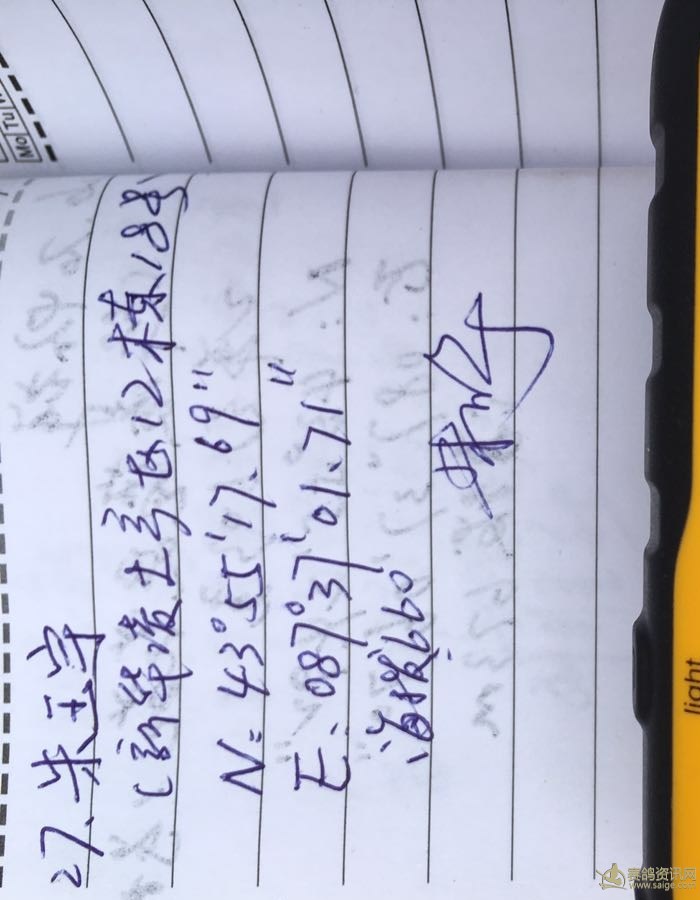 27. 朱玉宁
(新华凌土产 B12栋188号
N: 43°55'17.69"
E: 087°37'01.71"
海拔660
Mo Tu
light
赛鸽资讯网
www.saige.com